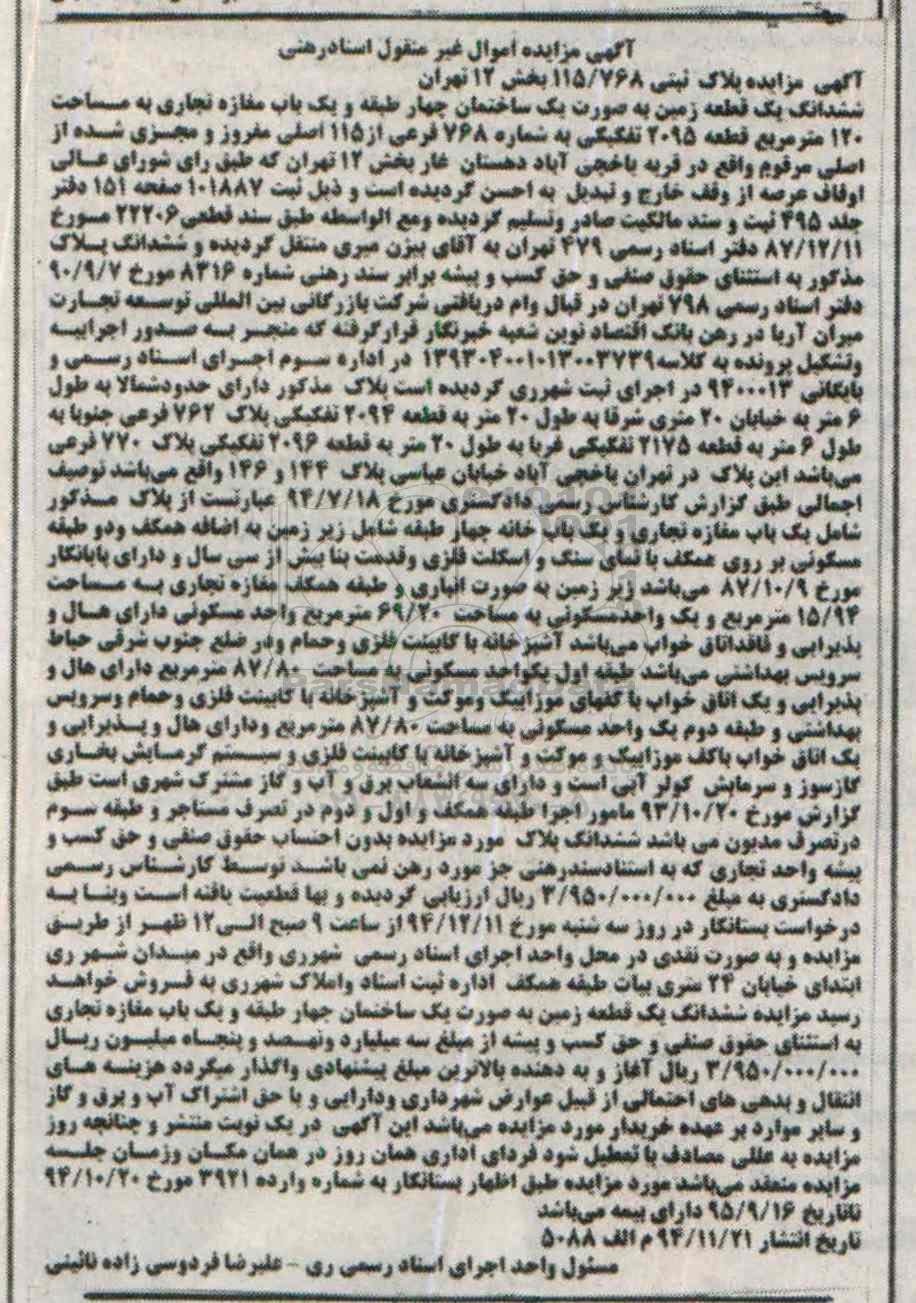 آگهی مزایده اموال غیر منقول اسنادرهنی
آگهی مزایده پلاک ثبتی ۱۱۵/۷۶۸ بخش ۱۲ تهران
ششدانگ یک قطعه زمین به صورت یک ساختمان چهار طبقه و یک باب مغازه تجاری به مساحت
۱۲۰ مترمربع قطعه ۲۰۹۵ تفکیکی به شماره ۷۶۸ فرعی از۱۱۵ اصلی مفروز و مجزی شده از
اصلی مرقوم واقع در قریه یاخچی آباد دهستان غار بخش ۱۲ تهران که طبق رای شورای عالی
اوقاف عرصه از وقف خارج و تبدیل به احسن گردیده است و ذیل ثبت ۱۰۱۸۸۷ صفحه ۱۵۱ دفتر
جلد ۴۹۵ ثبت و سند مالکیت صادر وتسلیم گردیده ومع الواسطه طبق سند قطعی۲۲۲۰۶ مورخ
۸۷/۱۲/۱۱ دفتر اسناد رسمی ۴۷۹ تهران به آقای بیژن میری منتقل گردیده و ششدانگ پلاک
مذکور به استثنای حقوق صنفی و حق کسب و پیشه برابر سند رهنی شماره ۸۳۱۶ مورخ ۹۰/۹/۷
دفتر اسناد رسمی ۷۹۸ تهران در قبال وام دریافتی شرکت بازرگانی بین المللی توسعه تجارت
میران آریا در رهن بانک اقتصاد نوین شعبه خبرنگار قرارگرفته که منجر به صدور اجراییه
وتشکیل پرونده به کلاسه۱۳۹۳۰۴۰۰۱۰۱۳۰۰۳۷۳۹ در اداره سوم اجرای اسناد رسمی و
بایگانی ۹۴۰۰۰۱۳ در اجرای ثبت شهرری گردیده است پلاک مذکور دارای حدودشمالا به طول
۶ متر به خیابان ۲۰ متری شرقا به طول ۲۰ متر به قطعه ۲۰۹۴ تفکیکی پلاک ۷۶۲ فرعی جنوبا به
طول ۶ متر به قطعه ۲۱۷۵ تفکیکی غربا به طول ۲۰ متر به قطعه ۲۰۹۶ تفکیکی پلاک ۷۷۰ فرعی
می‌باشد این پلاک در تهران یاخچی آباد خیابان عباسی پلاک ۱۴۴ و ۱۴۶ واقع می‌باشد توصیف
اجمالی طبق گزارش کارشناس رسمی دادگستری مورخ ۹۴/۷/۱۸ عبارتست از پلاک مذکور
شامل یک باب مغازه تجاری و یک باب خانه چهار طبقه شامل زیر زمین به اضافه همکف ودو طبقه
مسکونی بر روی همکف با نمای سنگ و اسکلت فلزی وقدمت بنا بیش از سی سال و دارای پایانکار
مورخ ۸۷/۱۰/۹ می‌باشد زیر زمین به صورت انباری و طبقه همکف مغازه تجاری به مساحت
۱۵/۹۴ مترمربع و یک واحدمسکونی به مساحت ۶۹/۲۰ مترمربع واحد مسکونی دارای هال و
پذیرایی و فاقداتاق خواب می‌باشد آشپزخانه با کابینت فلزی وحمام ودر ضلع جنوب شرقی حیاط
سرویس بهداشتی می‌باشد طبقه اول یکواحد مسکونی به مساحت ۸۷/۸۰ مترمربع دارای هال و
پذیرایی و یک اتاق خواب با کفهای موزاییک وموکت و آشپزخانه با کابینت فلزی وحمام وسرویس
بهداشتی و طبقه دوم یک واحد مسکونی به مساحت ۸۷/۸۰ مترمربع ودارای هال و پذیرایی و
یک اتاق خواب باکف موزاییک و موکت و آشپزخانه با کابینت فلزی و سیستم گرمایش بخاری
گازسوز و سرمایش کولر آبی است و دارای سه انشعاب برق و آب و گاز مشترک شهری است طبق
گزارش مورخ ۹۳/۱۰/۲۰ مامور اجرا طبقه همکف و اول و دوم در تصرف مستاجر و طبقه سوم
درتصرف مدیون می باشد ششدانگ پلاک مورد مزایده بدون احتساب حقوق صنفی و حق کسب و
پیشه واحد تجاری که به استنادسندرهنی جز مورد رهن نمی باشد توسط کارشناس رسمی
دادگستری به مبلغ ۳/۹۵۰/۰۰۰/۰۰۰ ریال ارزیابی گردیده و بها قطعیت یافته است وبنا به
درخواست بستانکار در روز سه شنبه مورخ ۹۴/۱۲/۱۱ از ساعت ۹ صبح الی۱۲ ظهر از طریق
مزایده و به صورت نقدی در محل واحد اجرای اسناد رسمی شهرری واقع در میدان شهر ری
ابتدای خیابان ۲۴ متری بیات طبقه همکف اداره ثبت اسناد واملاک شهرری به فروش خواهد
رسید مزایده ششدانگ یک قطعه زمین به صورت یک ساختمان چهار طبقه و یک باب مغازه تجاری
به استثنای حقوق صنفی و حق کسب و پیشه از مبلغ سه میلیارد ونهصد و پنجاه میلیون ریال
۳/۹۵۰/۰۰۰/۰۰۰ ریال آغاز و به دهنده بالاترین مبلغ پیشنهادی واگذار میگردد هزینه های
انتقال و بدهی های احتمالی از قبیل عوارض شهرداری ودارایی و یا حق اشتراک آب و برق و گاز
و سایر موارد بر عهده خریدار مورد مزایده می‌باشد این آگهی در یک نوبت منتشر و چنانچه روز
مزایده به عللی مصادف با تعطیل شود فردای اداری همان روز در همان مکان وزمان جلسه
مزایده منعقد می‌باشد مورد مزایده طبق اظهار بستانکار به شماره وارده ۳۹۲۱ مورخ ۹۴/۱۰/۲۰
تاتاریخ ۹۵/۹/۱۶ دارای بیمه می‌باشد
تاریخ انتشار ۹۴/۱۱/۲۱ م الف ۵۰۸۸
مسئول واحد اجرای اسناد رسمی ری - علیرضا فردوسی زاده نائینی